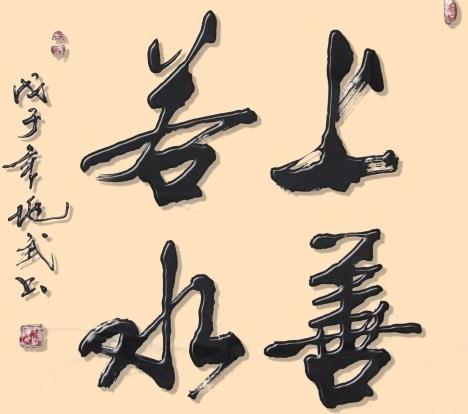 上善
若水
戊子年武书